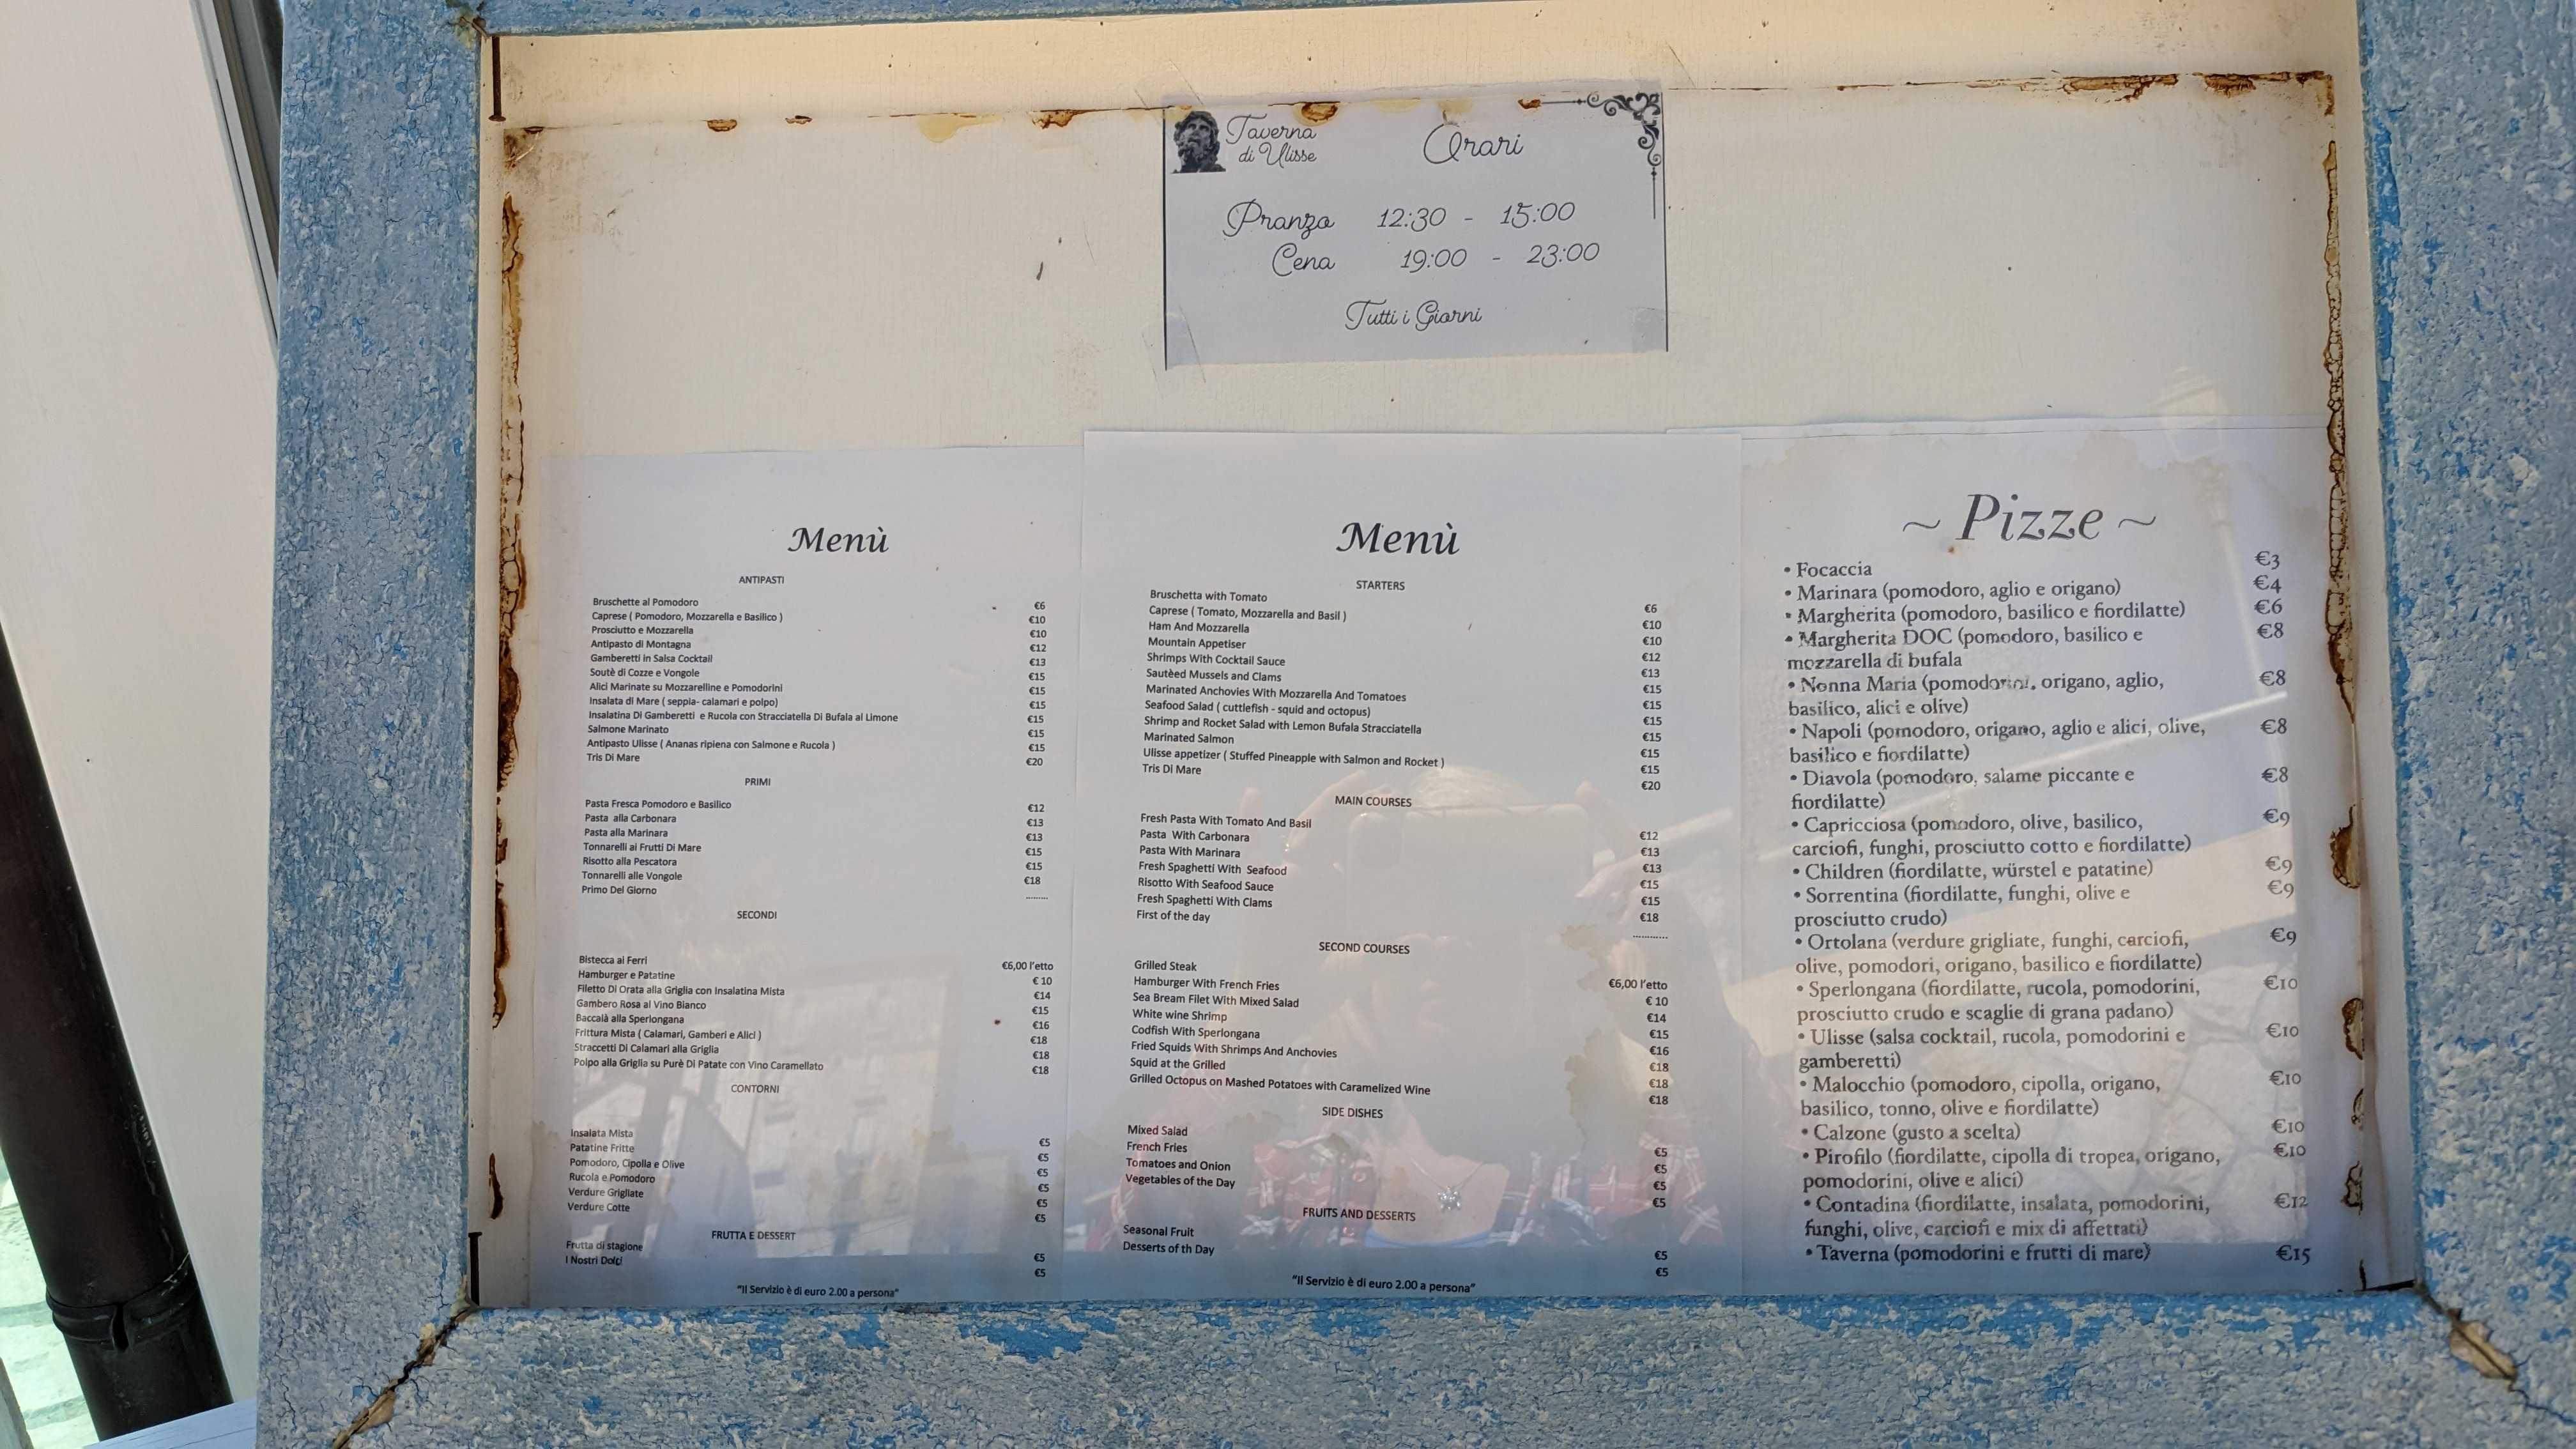 Taverna
di Ulisse
Orari
Pranzo 12:30 - 15:00
Cena 19:00 - 23:00
Tutti i Giorni
Menù
ANTIPASTI
Bruschette al Pomodoro €6
Caprese ( Pomodoro, Mozzarella e Basilico ) €10
Prosciutto e Mozzarella €10
Antipasto di Montagna €12
Gamberetti in Salsa Cocktail €13
Soutè di Cozze e Vongole €15
Alici Marinate su Mozzarelline e Pomodorini €15
Insalata di Mare ( seppia- calamari e polpo) €15
Insalatina Di Gamberetti e Rucola con Stracciatella Di Bufala al Limone €15
Salmone Marinato €15
Antipasto Ulisse ( Ananas ripiena con Salmone e Rucola ) €15
Tris Di Mare €20
PRIMI
Pasta Fresca Pomodoro e Basilico €12
Pasta alla Carbonara €13
Pasta alla Marinara €13
Tonnarelli ai Frutti Di Mare €15
Risotto alla Pescatora €15
Tonnarelli alle Vongole €18
Primo Del Giorno .........
SECONDI
Bistecca ai Ferri €6,00 l'etto
Hamburger e Patatine € 10
Filetto Di Orata alla Griglia con Insalatina Mista €14
Gambero Rosa al Vino Bianco €15
Baccalà alla Sperlongana €16
Frittura Mista ( Calamari, Gamberi e Alici ) €18
Straccetti Di Calamari alla Griglia €18
Polpo alla Griglia su Purè Di Patate con Vino Caramellato €18
CONTORNI
Insalata Mista €5
Patatine Fritte €5
Pomodoro, Cipolla e Olive €5
Rucola e Pomodoro €5
Verdure Grigliate €5
Verdure Cotte €5
FRUTTA E DESSERT
Frutta di stagione €5
I Nostri Dolci €5
"Il Servizio è di euro 2.00 a persona"
Menù
STARTERS
Bruschetta with Tomato €6
Caprese ( Tomato, Mozzarella and Basil ) €10
Ham And Mozzarella €10
Mountain Appetiser €12
Shrimps With Cocktail Sauce €13
Sautèed Mussels and Clams €15
Marinated Anchovies With Mozzarella And Tomatoes €15
Seafood Salad ( cuttlefish - squid and octopus) €15
Shrimp and Rocket Salad with Lemon Bufala Stracciatella €15
Marinated Salmon €15
Ulisse appetizer ( Stuffed Pineapple with Salmon and Rocket ) €15
Tris Di Mare €20
MAIN COURSES
Fresh Pasta With Tomato And Basil €12
Pasta With Carbonara €13
Pasta With Marinara €13
Fresh Spaghetti With Seafood €15
Risotto With Seafood Sauce €15
Fresh Spaghetti With Clams €18
First of the day ............
SECOND COURSES
Grilled Steak €6,00 l'etto
Hamburger With French Fries € 10
Sea Bream Filet With Mixed Salad €14
White wine Shrimp €15
Codfish With Sperlongana €16
Fried Squids With Shrimps And Anchovies €18
Squid at the Grilled €18
Grilled Octopus on Mashed Potatoes with Caramelized Wine €18
SIDE DISHES
Mixed Salad €5
French Fries €5
Tomatoes and Onion €5
Vegetables of the Day €5
FRUITS AND DESSERTS
Seasonal Fruit €5
Desserts of th Day €5
"Il Servizio è di euro 2.00 a persona"
~ Pizze ~
• Focaccia €3
• Marinara (pomodoro, aglio e origano) €4
• Margherita (pomodoro, basilico e fiordilatte) €6
• Margherita DOC (pomodoro, basilico e €8
mozzarella di bufala
• Nonna Maria (pomodorini, origano, aglio, €8
basilico, alici e olive)
• Napoli (pomodoro, origano, aglio e alici, olive, €8
basilico e fiordilatte)
• Diavola (pomodoro, salame piccante e €8
fiordilatte)
• Capricciosa (pomodoro, olive, basilico, €9
carciofi, funghi, prosciutto cotto e fiordilatte)
• Children (fiordilatte, würstel e patatine) €9
• Sorrentina (fiordilatte, funghi, olive e €9
prosciutto crudo)
• Ortolana (verdure grigliate, funghi, carciofi, €9
olive, pomodori, origano, basilico e fiordilatte)
• Sperlongana (fiordilatte, rucola, pomodorini, €10
prosciutto crudo e scaglie di grana padano)
• Ulisse (salsa cocktail, rucola, pomodorini e €10
gamberetti)
• Malocchio (pomodoro, cipolla, origano, €10
basilico, tonno, olive e fiordilatte)
• Calzone (gusto a scelta) €10
• Pirofilo (fiordilatte, cipolla di tropea, origano, €10
pomodorini, olive e alici)
• Contadina (fiordilatte, insalata, pomodorini, €12
funghi, olive, carciofi e mix di affettati)
• Taverna (pomodorini e frutti di mare) €15